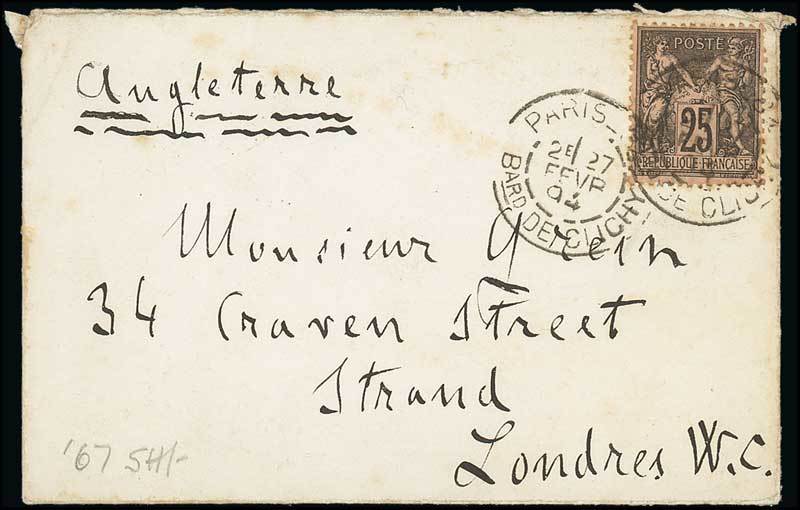 Angleterre
POSTE
25
REPUBLIQUE FRANÇAISE
PARIS
2E 27
FEVR
94
BARD DE CLICHY
DE CLIC
Monsieur Grein
34 Craven Street
Strand
Londres W.C.
'67